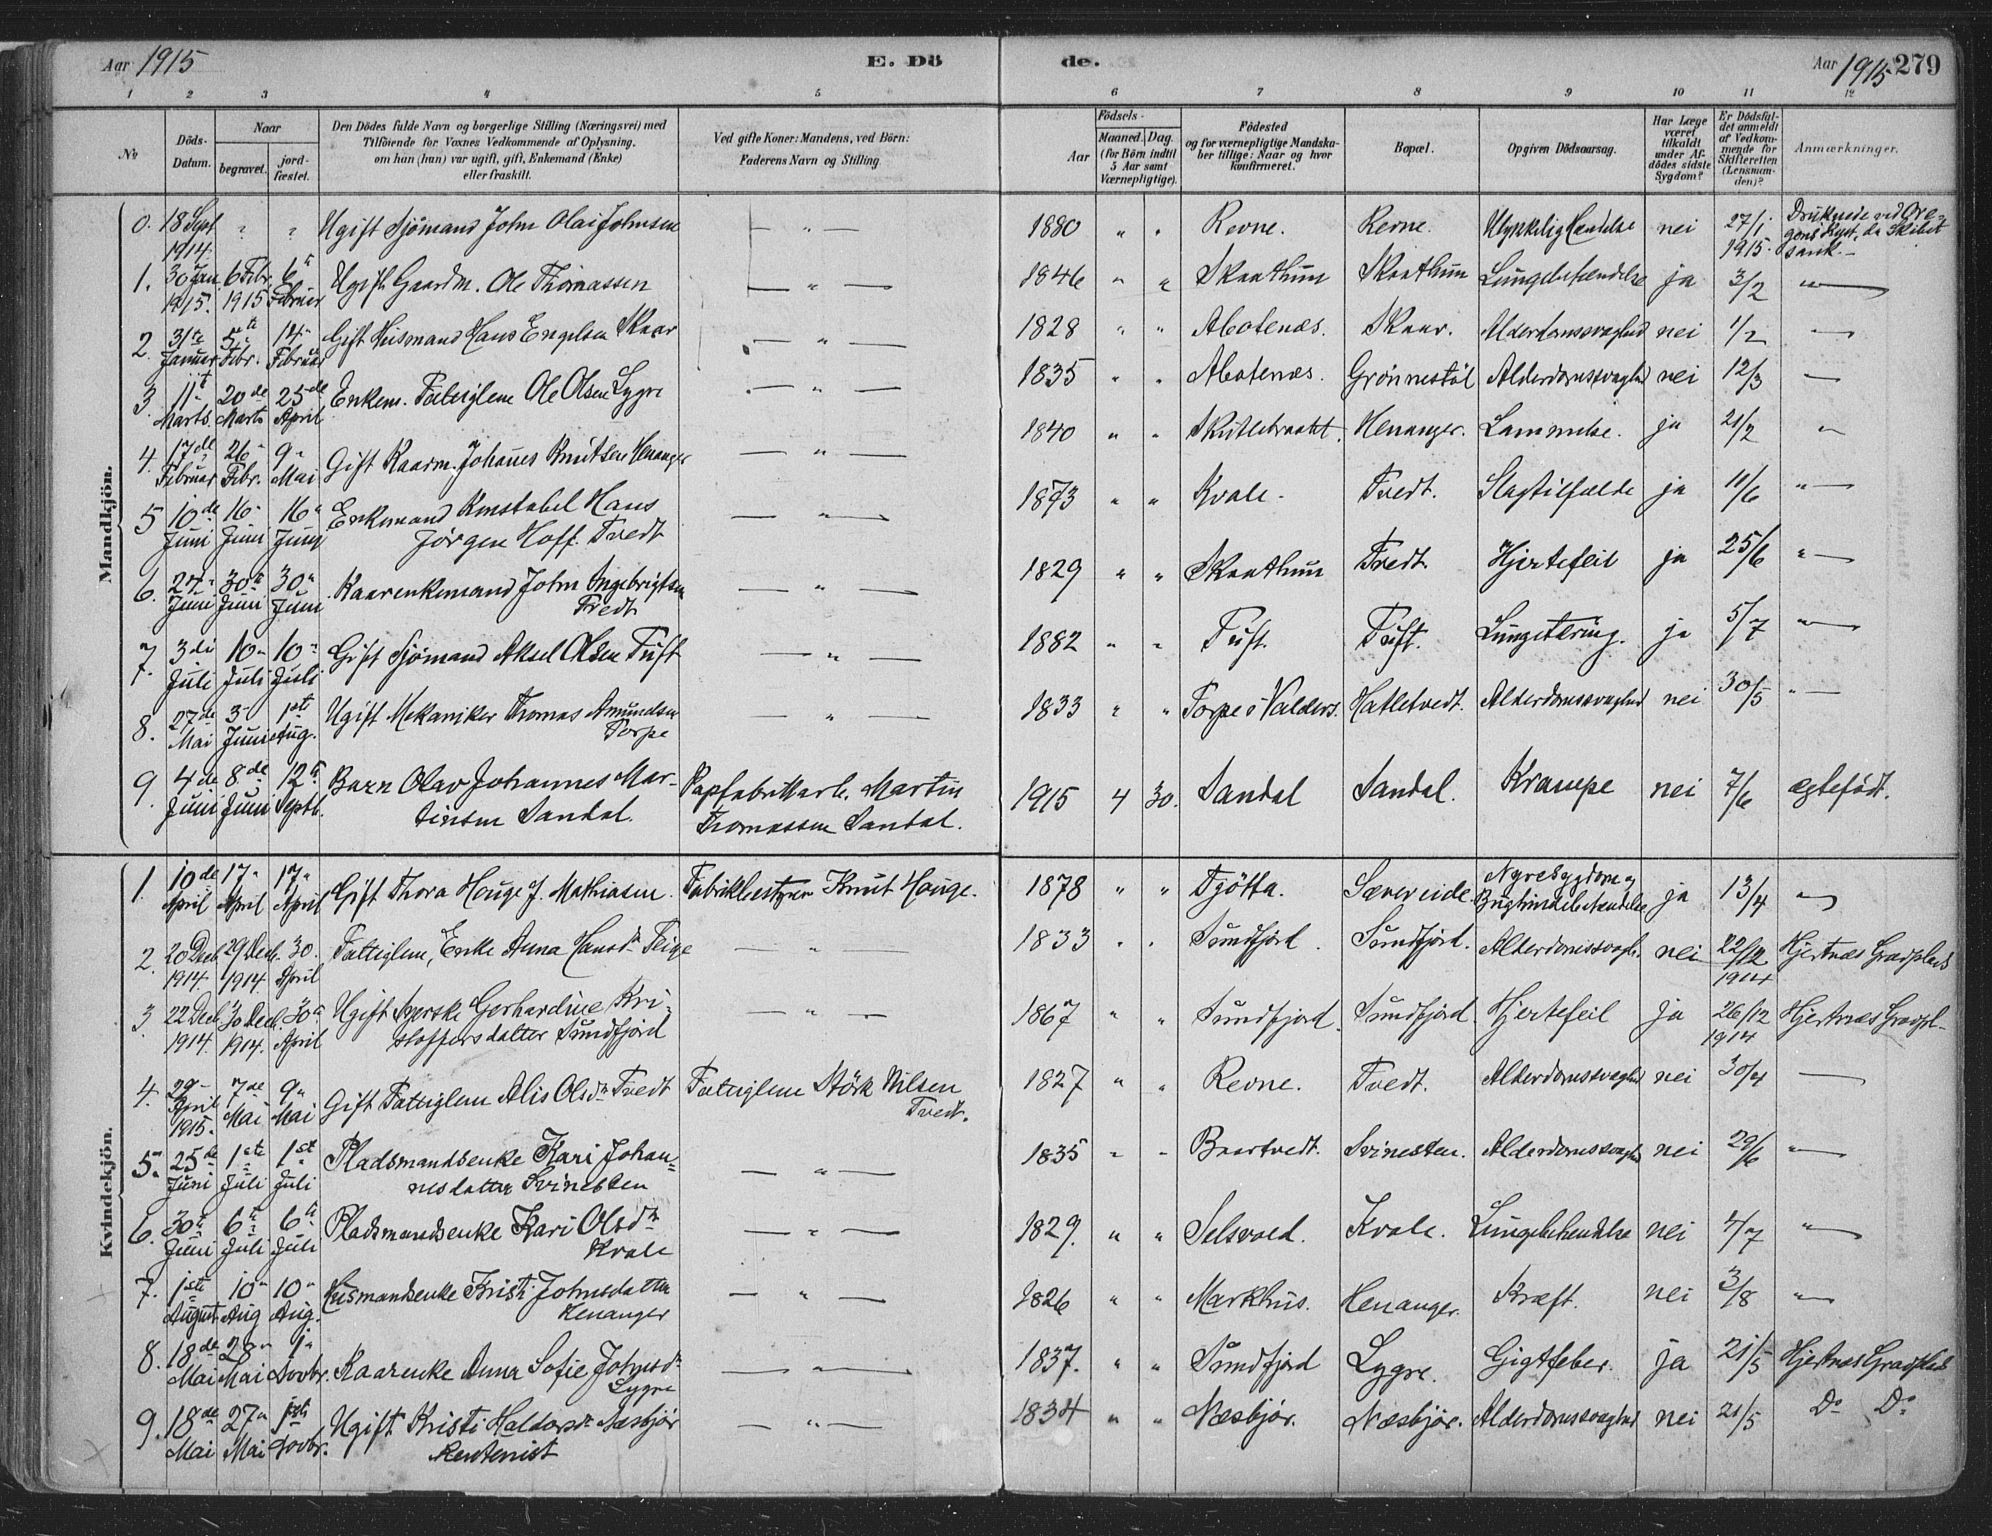 Aar 1915 E. Dö
de. Aar 1915 279
1 2 3 4 5 6 7 8 9 10 11 12
No Döds-Datum. Naar begravet. jord-fæstet. Den Dödes fulde Navn og borgerlige Stilling (Næringsvei) med Tilföiende for Voxnes Vedkommende af Oplysning. om han (hun) var ugift, gift, Enkemand (Enke) eller fraskilt. Ved gifte Koner: Mandens, ved Börn: Faderens Navn og Stilling. Födsels- Aar Maaned. Dag. (for Börn indtil 5 Aar samt Værnepligtige). Födested og for værnepligtige Mandskaber tillige: Naar og hvor konfirmeret. Bopæl. Opgiven Dödsaarsag. Har Læge været tilkaldt under Afdödes sidste Sygdom? Er Dödsfaldet anmeldt af Vedkommende for Skifteretten (Lensmanden)? Anmærkninger.
Mandkjön.
0. 18 Sept 1914. " " Ugift Sjömand John Olai Johnsen — " — 1880 " " Revne. Revne. Ulykkelig Hændelse nei 27/1 1915. Druknede ved Oregons Kyst, da Skibet sank. —
1. 30 Jan 1915. 6 Febr. 1915 6te Februar Ugift Gaardm. Ole Thomassen — " — 1846 " " Skaathun Skaathun Lungebetændelse ja 3/2 " —
2. 31te Januar 5te Febr. 14" Februar Gift Husmand Hans Engelsen Skaar — " — 1828 " " Abotenæs. Skaar. Alderdomssvaghed nei 1/2 —
3. 11t Marts. 20de Marts 25de April Enkem. Fattiglem Ole Olsen Lygre — " — 1835 " " Abotenæs. Grönnestöl Alderdomssvaghed nei 12/3 —
4. 17de Februar 26" Febr. 9" Mai Gift Kaarm. Johannes Knutsen Henanger — " — 1840 " " Skutlebraatet. Henanger. Lammelse. ja 21/2 "
5 10de Juni 16" Juni 16" Juni Enkemand Konstabel Hans Jörgen Hoff. Tvedt — " — 1873 " " Kvale. Tvedt. Slagtilfælde ja 11/6 " —
6. 24" Juni 30te Juni 30" Juni Kaarenkemand John Ingebrigtsen Tvedt — " — 1829 " " Skaathun Tvedt. Hjertefeil ja 25/6 " —
7. 3die Juli 10" Juli 10" Juli Gift Sjömand Aksel Olsen Tuft — " — 1882 " " Tuft. Tuft. Lungetæring. ja 5/7 " —
8. 27de Mai 3" Juni 1ste Aug. Ugift Mekaniker Thomas Amundsen Torpe — " — 1833 " " Torpe i Valders. Hatletvedt. Alderdomssvaghed nei 30/5 " —
9. 4de Juni 8de Juni 12te Septb. Barn Olav Johannes Martinsen Sandal. Papfabrikarb. Martin Thomassen Sandal. 1915 4 30. Sandal Sandal. Krampe nei 7/6 ægtefödt.
Kvindekjön.
1. 10de April 17" April 17" April Gift Thora Houge f. Mathiasen. Fabrikbestyrer Knut Houge. 1878 " " Tjötta. Sævereide. Nyresygdom og Brysthindebetændelse ja 13/4 "
2. 20 Decb. 1914. 29 Decb. 1914. 30. April Fattiglem, Enke Anna Hansdr Teige — " — 1833 " " Sundfjord. Sundfjord. Alderdomssvagh. nei 22/12 1914 Hjertnæs Gravplads
3 22 Decb 1914. 30 Decb. 1914. 30te April Ugift Sverske Gerhardine Kristoffersdatter Sundfjord — " — 1867 " " Sundfjord. Sundfjord. Hjertefeil ja 26/12 1914 Hjertnæs Gravpl.
4. 29" April 1915. 7de Mai 9" Mai Gift Fattiglem Alis Olsdr Tvedt Fattiglem Störk Nilsen Tvedt. 1827 " " Revne. Tvedt. Alderdomssvaghed nei 30/4 —
5. 25de Juni 1ste Juli 1st Juli Pladsmandsenke Kari Johannesdatter Svinesten — " — 1835 " " Baartvedt. Svinesten. Alderdomssvaghed nei 29/6 " —
6. 30te Juni 6te Juli 6te Juli Pladsmandsenke Kari Olsdr Kvale — " — 1829. " " Selsvold. Kvale. Lungebetændelse nei 4/7 " —
7. 1ste August 10" Aug 10" Aug. Husmandsenke Kristi Johnsdatter Henanger — " — 1826 " " Markhus. Henanger. Kræft. nei 3/8 " —
8. 18de Mai 28" Mai 1" Novbr. Kaarenke Anna Sofie Johnsdr Lygre — " — 1837. " " Sundfjord Lygre. Gigtfeber. ja 21/5 Hjertnæs Gravplads
9. 18de Mai 27" Mai 1ste Novbr. Ugift Kristi Haldorsdr Næsbjör Rentenist — " — 1834 " " Næsbjör. Næsbjör. Alderdomssvaghed nei 21/5 Do Do